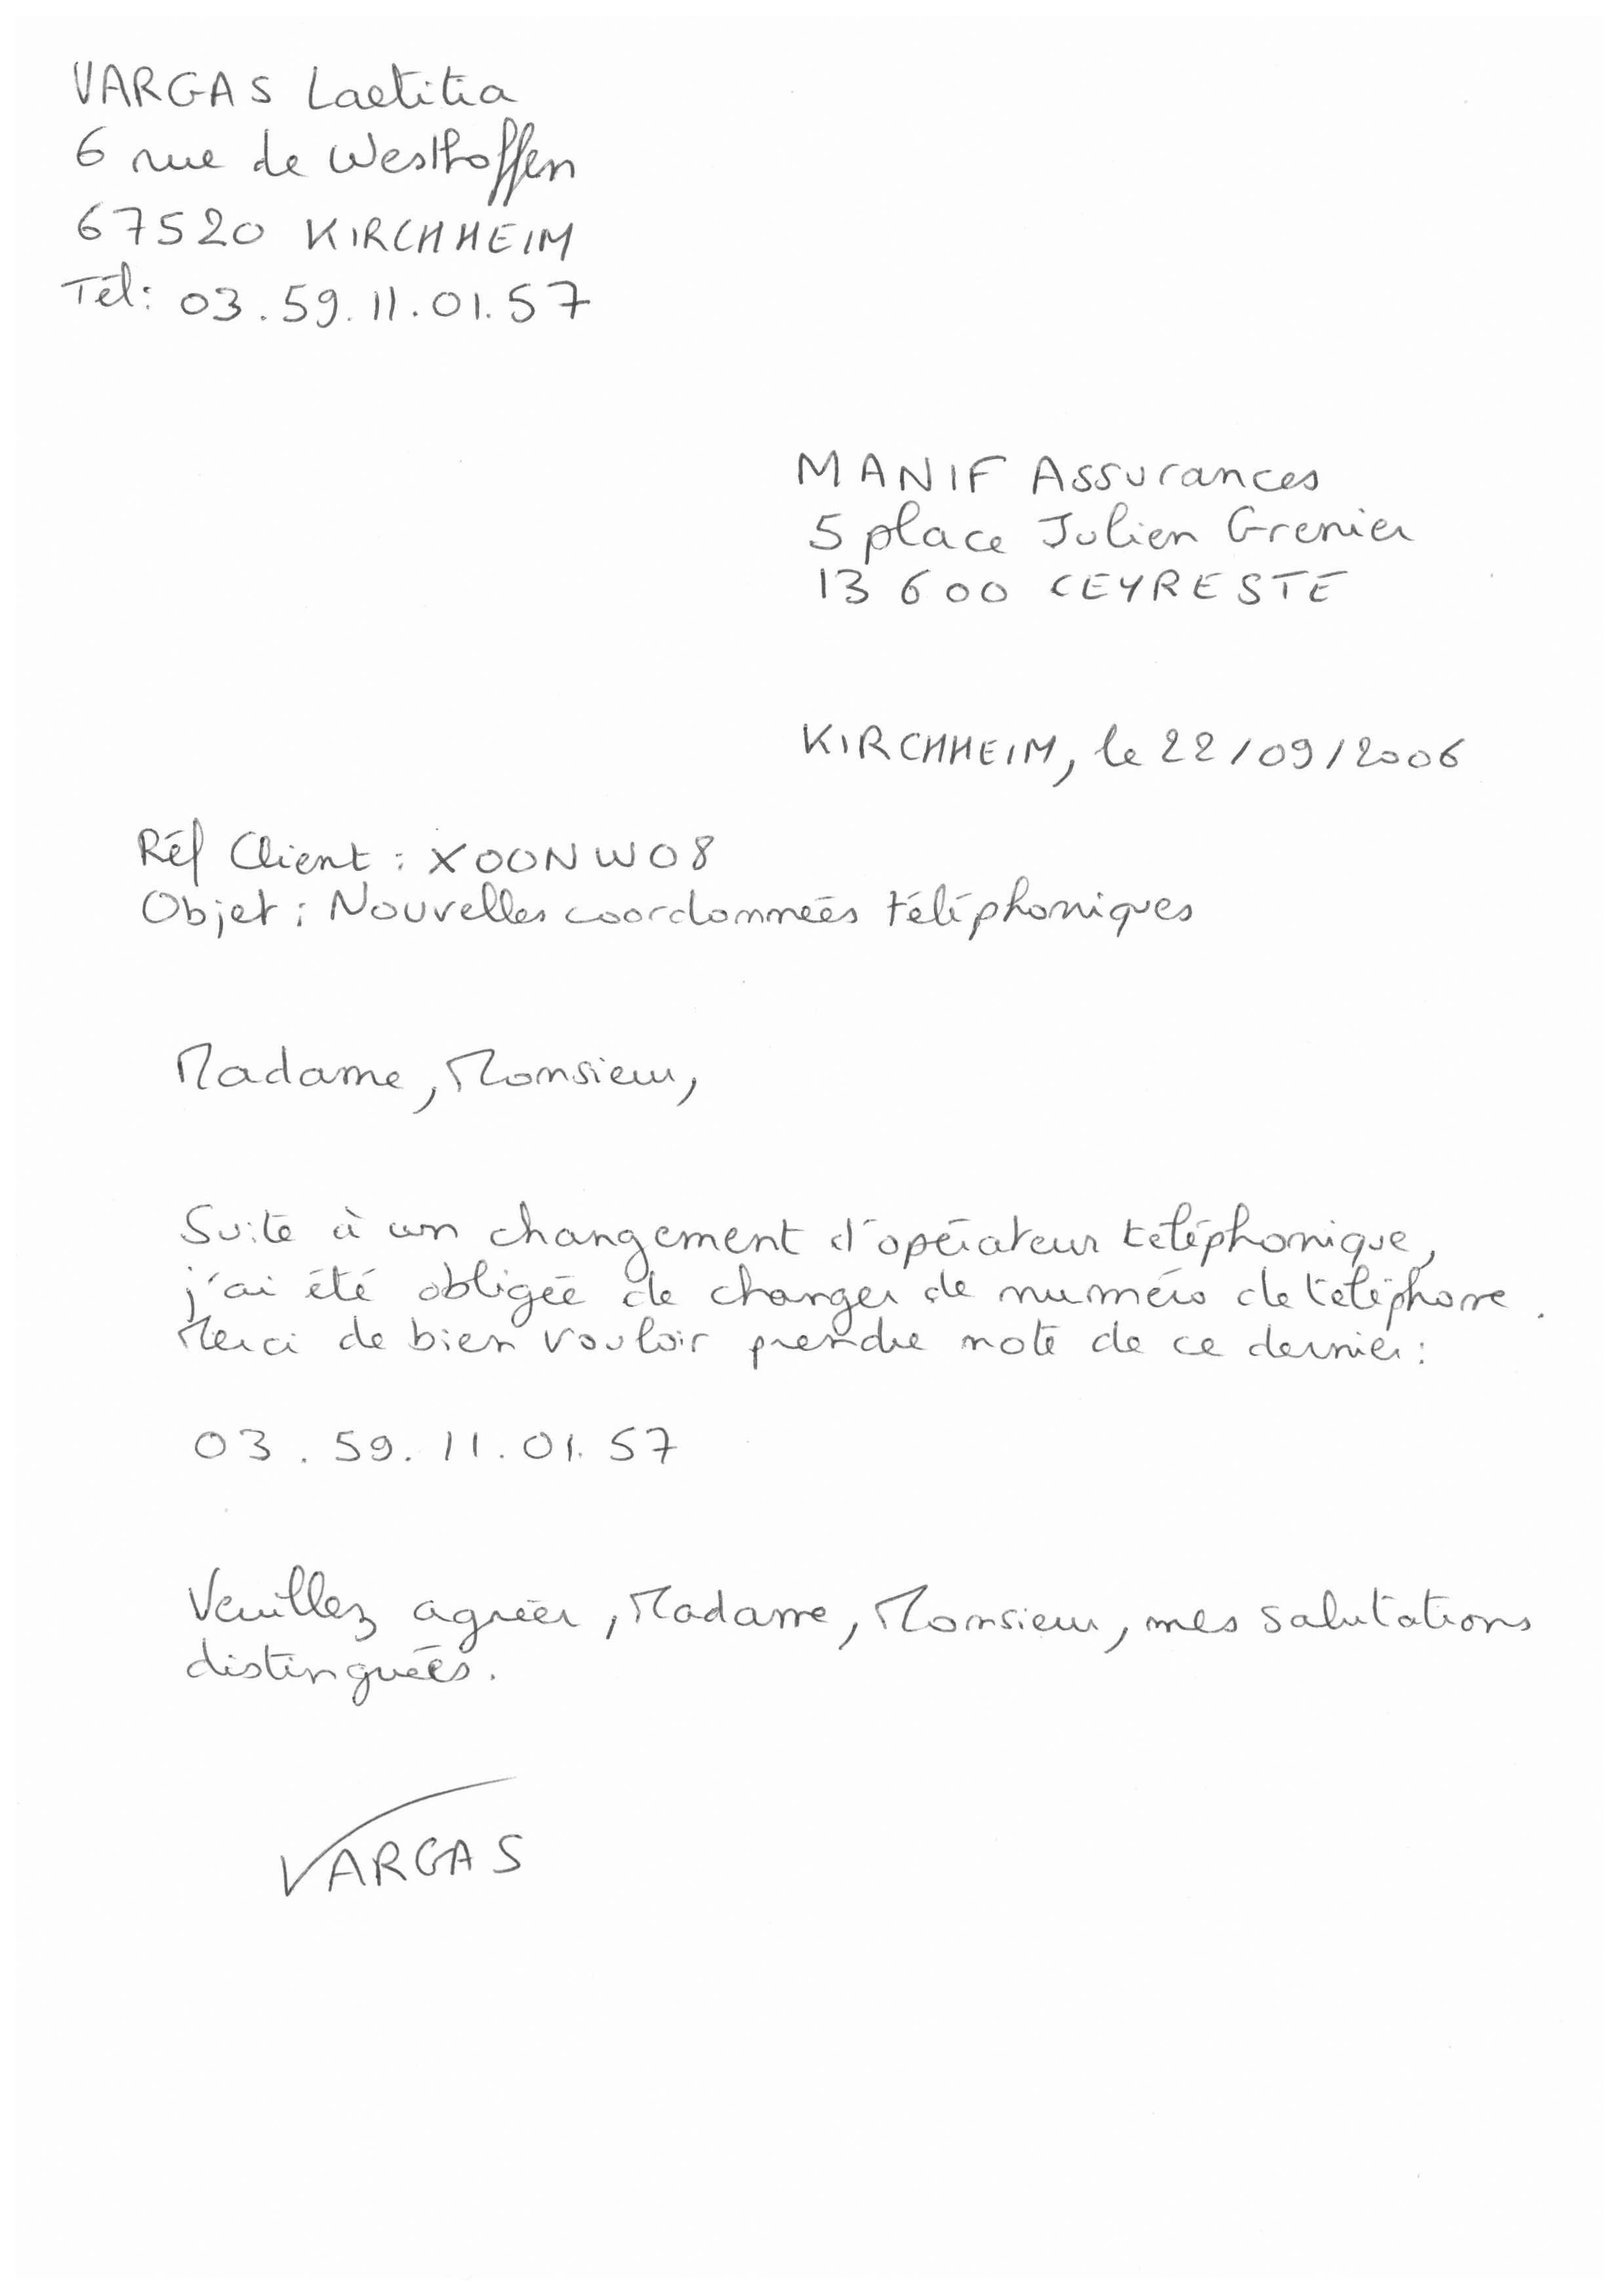 VARGAS Laetitia
6 rue de Westhoffen
67520 KIRCHHEIM
Tél: 03.59.11.01.57
MANIF Assurances
5 place Julien Grenier
13 600 CEYRESTE
KIRCHHEIM, le 22/09/2006
Réf Client : XOONW08
Objet : Nouvelles coordonnées téléphoniques
Madame, Monsieur,
Suite à un changement d'opérateur téléphonique,
j'ai été obligée de changer de numéro de téléphone.
Merci de bien vouloir prendre note de ce dernier :
03.59.11.01.57
Veuillez agréer, Madame, Monsieur, mes salutations
distinguées.
VARGAS